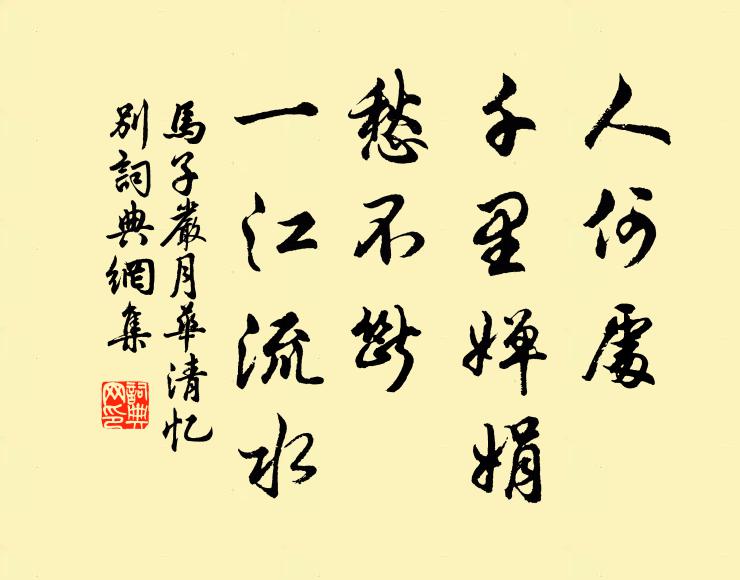 人何處
千里嬋娟
愁不斷
一江流水
馬子嚴月華清忆
別詞典網集
詞典網印